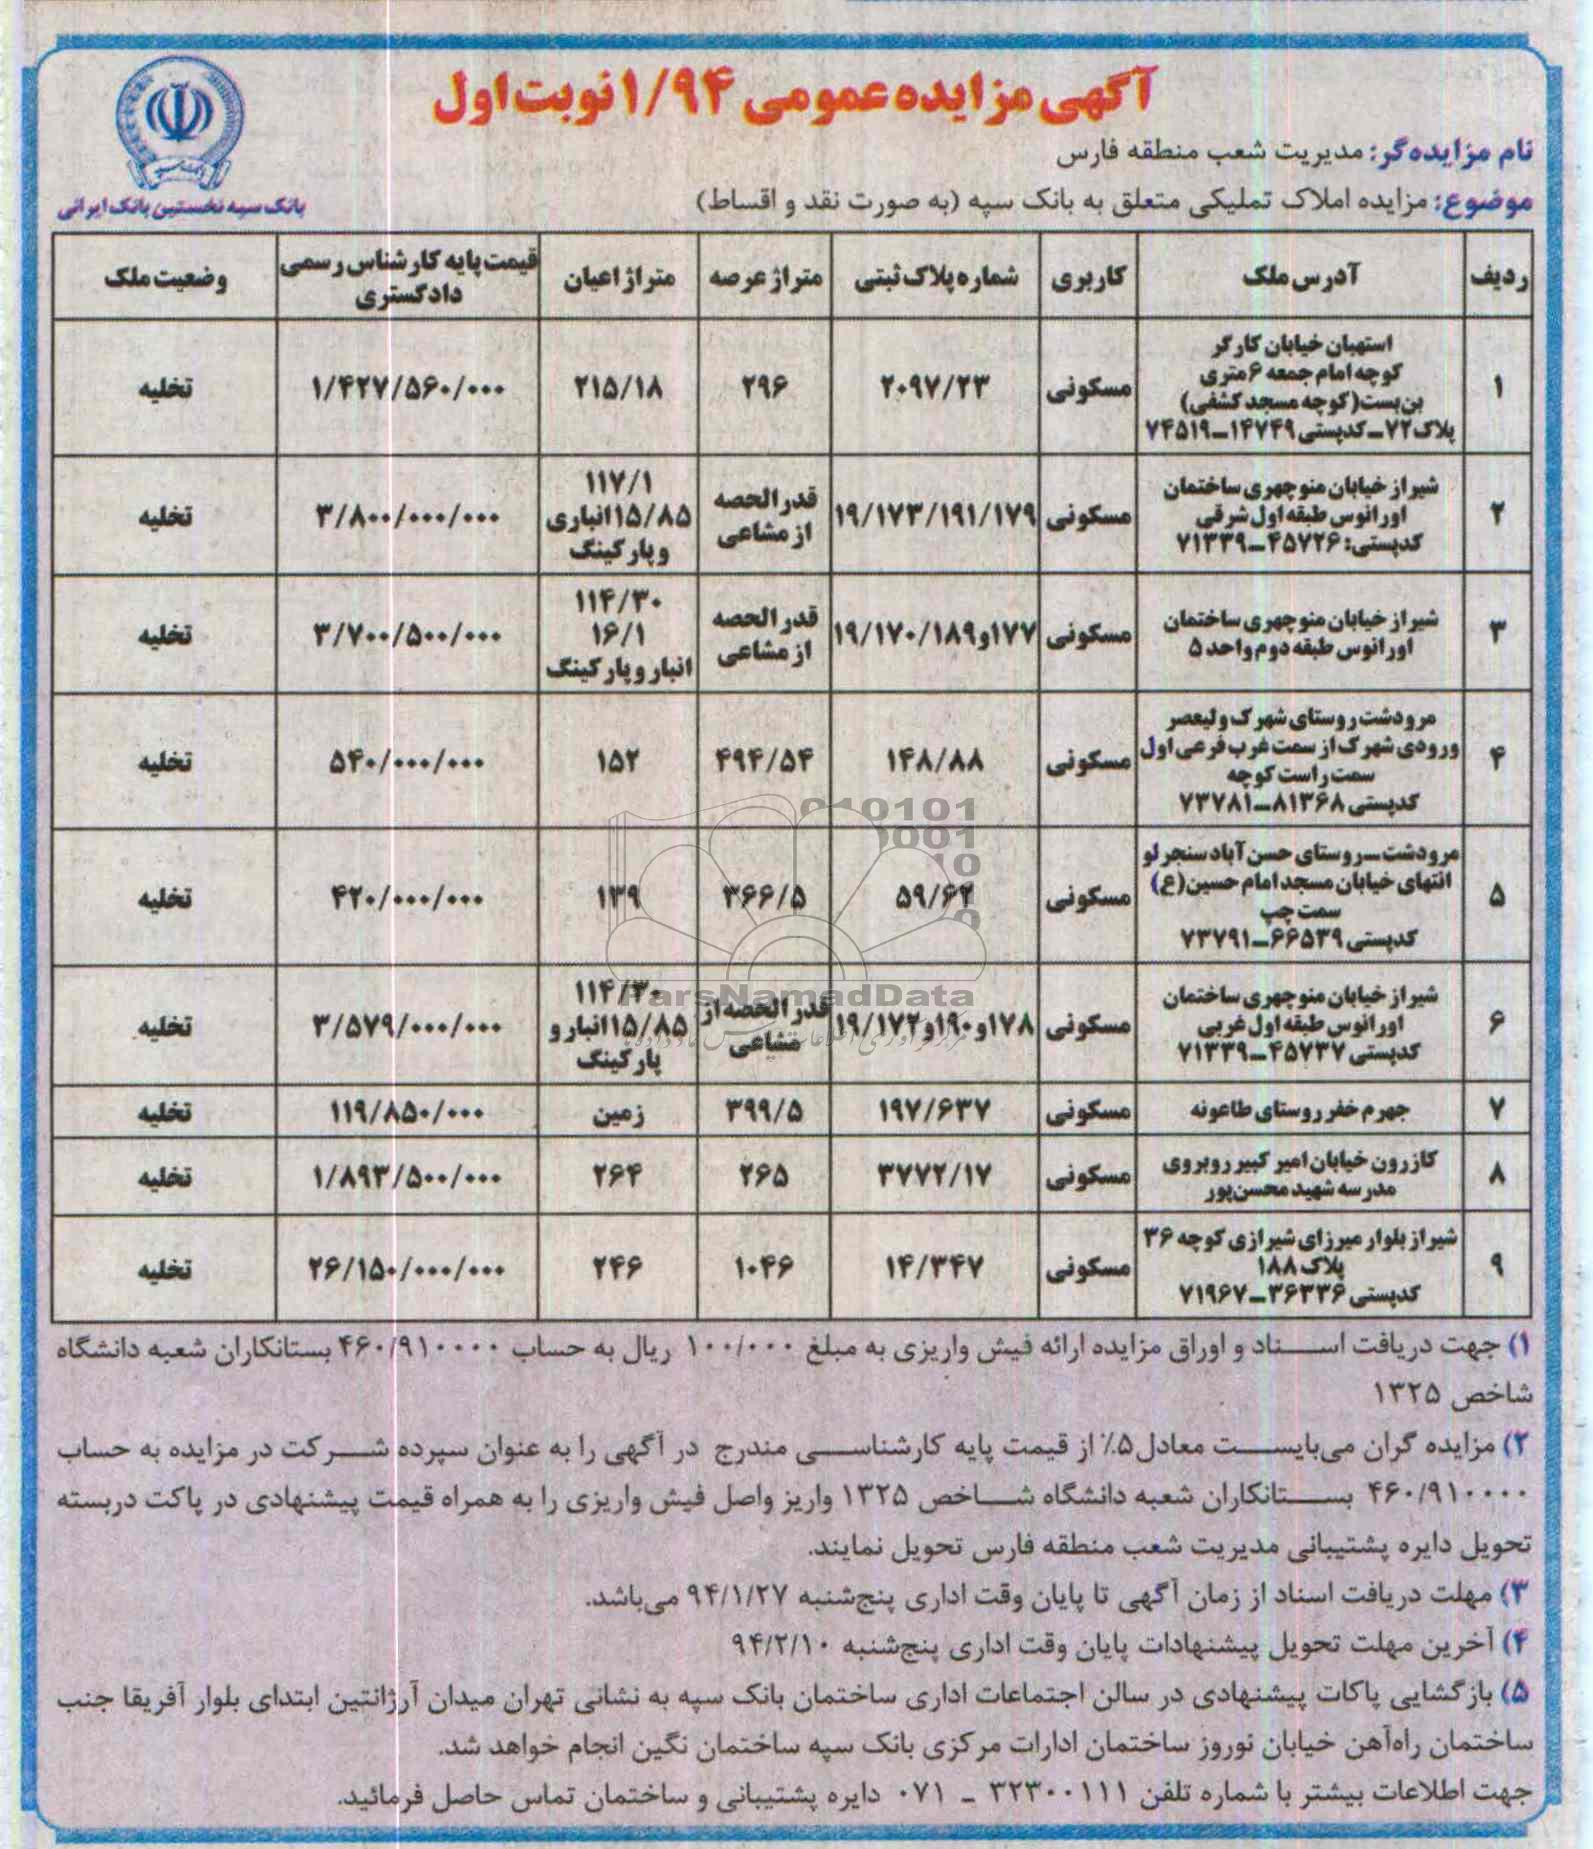 آگهی مزایده عمومی ۱/۹۴ نوبت اول
بانک سپه نخستین بانک ایرانی
نام مزایده‌گر: مدیریت شعب منطقه فارس
موضوع: مزایده املاک تملیکی متعلق به بانک سپه (به صورت نقد و اقساط)
ردیف | آدرس ملک | کاربری | شماره پلاک ثبتی | متراژ عرصه | متراژ اعیان | قیمت پایه کارشناس رسمی دادگستری | وضعیت ملک
۱ | استهبان خیابان کارگر کوچه امام جمعه ۶ متری بن‌بست (کوچه مسجد کشفی) پلاک ۷۲ـ کدپستی ۱۴۷۴۹ـ۷۴۵۱۹ | مسکونی | ۲۰۹۷/۲۳ | ۲۹۶ | ۲۱۵/۱۸ | ۱/۴۲۷/۵۶۰/۰۰۰ | تخلیه
۲ | شیراز خیابان منوچهری ساختمان اورانوس طبقه اول شرقی کدپستی: ۴۵۷۲۶ـ۷۱۳۳۹ | مسکونی | ۱۹/۱۷۳/۱۹۱/۱۷۹ | قدرالحصه از مشاعی | ۱۱۷/۱ ۱۵/۸۵ انباری و پارکینگ | ۳/۸۰۰/۰۰۰/۰۰۰ | تخلیه
۳ | شیراز خیابان منوچهری ساختمان اورانوس طبقه دوم واحد ۵ | مسکونی | ۱۷۷و۱۹/۱۷۰/۱۸۹ | قدرالحصه از مشاعی | ۱۱۴/۳۰ ۱۶/۱ انبار و پارکینگ | ۳/۷۰۰/۵۰۰/۰۰۰ | تخلیه
۴ | مرودشت روستای شهرک ولیعصر ورودی شهرک از سمت غرب فرعی اول سمت راست کوچه کدپستی ۸۱۳۶۸ـ۷۳۷۸۱ | مسکونی | ۱۴۸/۸۸ | ۴۹۴/۵۴ | ۱۵۲ | ۵۴۰/۰۰۰/۰۰۰ | تخلیه
۵ | مرودشت ـ روستای حسن آباد سنجرلو انتهای خیابان مسجد امام حسین(ع) سمت چپ کدپستی ۶۶۵۳۹ـ۷۳۷۹۱ | مسکونی | ۵۹/۶۲ | ۳۶۶/۵ | ۱۳۹ | ۴۲۰/۰۰۰/۰۰۰ | تخلیه
۶ | شیراز خیابان منوچهری ساختمان اورانوس طبقه اول غربی کدپستی ۴۵۷۳۷ـ۷۱۳۳۹ | مسکونی | ۱۷۸و۱۹۰و۱۹/۱۷۲ | قدرالحصه از مشاعی | ۱۱۴/۳۰ ۱۵/۸۵ انبار و پارکینگ | ۳/۵۷۹/۰۰۰/۰۰۰ | تخلیه
۷ | جهرم خفر روستای طاعونه | مسکونی | ۱۹۷/۶۳۷ | ۳۹۹/۵ | زمین | ۱۱۹/۸۵۰/۰۰۰ | تخلیه
۸ | کازرون خیابان امیر کبیر روبروی مدرسه شهید محسن‌پور | مسکونی | ۳۷۷۲/۱۷ | ۲۶۵ | ۲۶۴ | ۱/۸۹۳/۵۰۰/۰۰۰ | تخلیه
۹ | شیراز بلوار میرزای شیرازی کوچه ۳۶ پلاک ۱۸۸ کدپستی ۳۶۳۳۶ـ۷۱۹۶۷ | مسکونی | ۱۴/۳۴۷ | ۱۰۴۶ | ۲۴۶ | ۲۶/۱۵۰/۰۰۰/۰۰۰ | تخلیه
010101
0001
10
0
ParsNamadData
۱) جهت دریافت اسناد و اوراق مزایده ارائه فیش واریزی به مبلغ ۱۰۰/۰۰۰ ریال به حساب ۴۶۰/۹۱۰۰۰۰ بستانکاران شعبه دانشگاه
شاخص ۱۳۲۵
۲) مزایده گران می‌بایست معادل ۵٪ از قیمت پایه کارشناسی مندرج در آگهی را به عنوان سپرده شرکت در مزایده به حساب
۴۶۰/۹۱۰۰۰۰ بستانکاران شعبه دانشگاه شاخص ۱۳۲۵ واریز واصل فیش واریزی را به همراه قیمت پیشنهادی در پاکت دربسته
تحویل دایره پشتیبانی مدیریت شعب منطقه فارس تحویل نمایند.
۳) مهلت دریافت اسناد از زمان آگهی تا پایان وقت اداری پنج‌شنبه ۹۴/۱/۲۷ می‌باشد.
۴) آخرین مهلت تحویل پیشنهادات پایان وقت اداری پنج‌شنبه ۹۴/۲/۱۰
۵) بازگشایی پاکات پیشنهادی در سالن اجتماعات اداری ساختمان بانک سپه به نشانی تهران میدان آرژانتین ابتدای بلوار آفریقا جنب
ساختمان راه‌آهن خیابان نوروز ساختمان ادارات مرکزی بانک سپه ساختمان نگین انجام خواهد شد.
جهت اطلاعات بیشتر با شماره تلفن ۳۲۳۰۰۱۱۱ ـ ۰۷۱ دایره پشتیبانی و ساختمان تماس حاصل فرمائید.